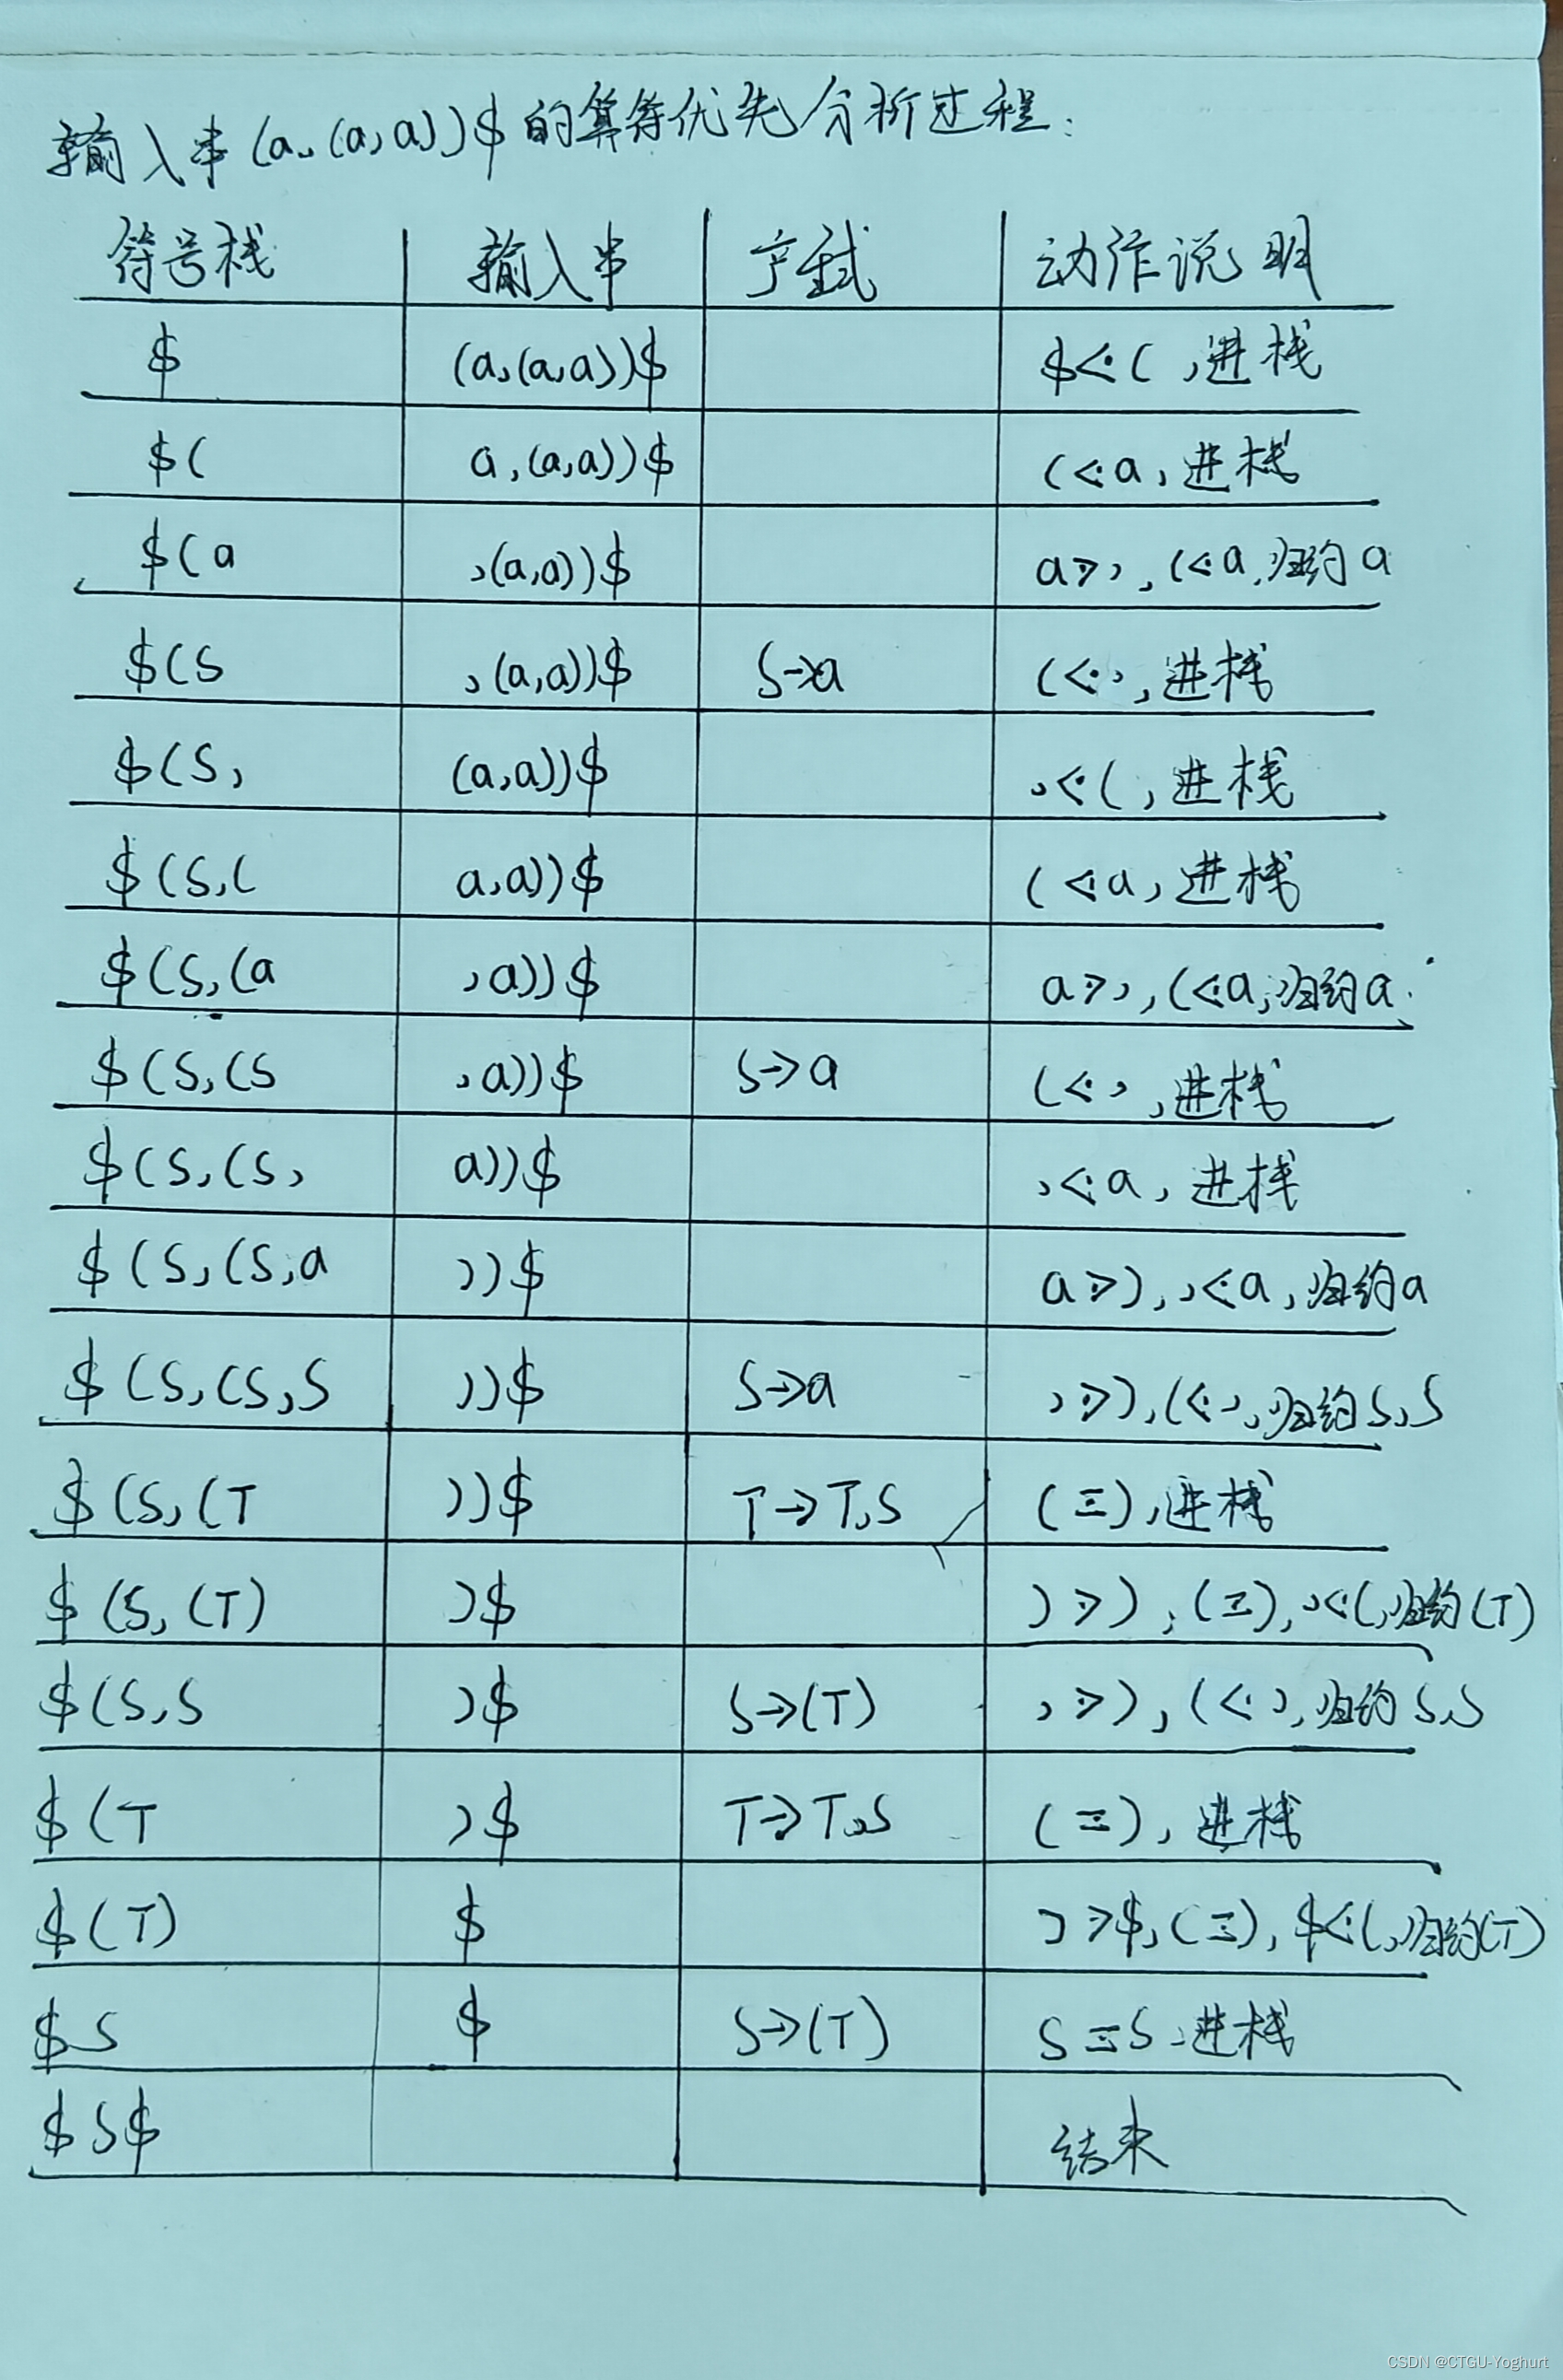 输入串(a,(a,a))$的算符优先分析过程:
符号栈 输入串 产生式 动作说明
$ (a,(a,a))$ $⋖( ,进栈
$( a,(a,a))$ (⋖a,进栈
$(a ,(a,a))$ a⋗, ,(⋖a,归约a
$(S ,(a,a))$ S→a (⋖, ,进栈
$(S, (a,a))$ ,⋖( ,进栈
$(S,( a,a))$ (⋖a,进栈
$(S,(a ,a))$ a⋗, ,(⋖a,归约a
$(S,(S ,a))$ S→a (⋖, ,进栈
$(S,(S, a))$ ,⋖a,进栈
$(S,(S,a ))$ a⋗),,⋖a,归约a
$(S,(S,S ))$ S→a ,⋗),(⋖,,归约S,S
$(S,(T ))$ T→T,S (三),进栈
$(S,(T) )$ )⋗),(三),,⋖(,归约(T)
$(S,S )$ S→(T) ,⋗),(⋖,,归约S,S
$(T )$ T→T,S (三),进栈
$(T) $ )⋗$,(三),$⋖(,归约(T)
$S $ S→(T) S三S,进栈
$S$ 结束
CSDN @CTGU-Yoghurt